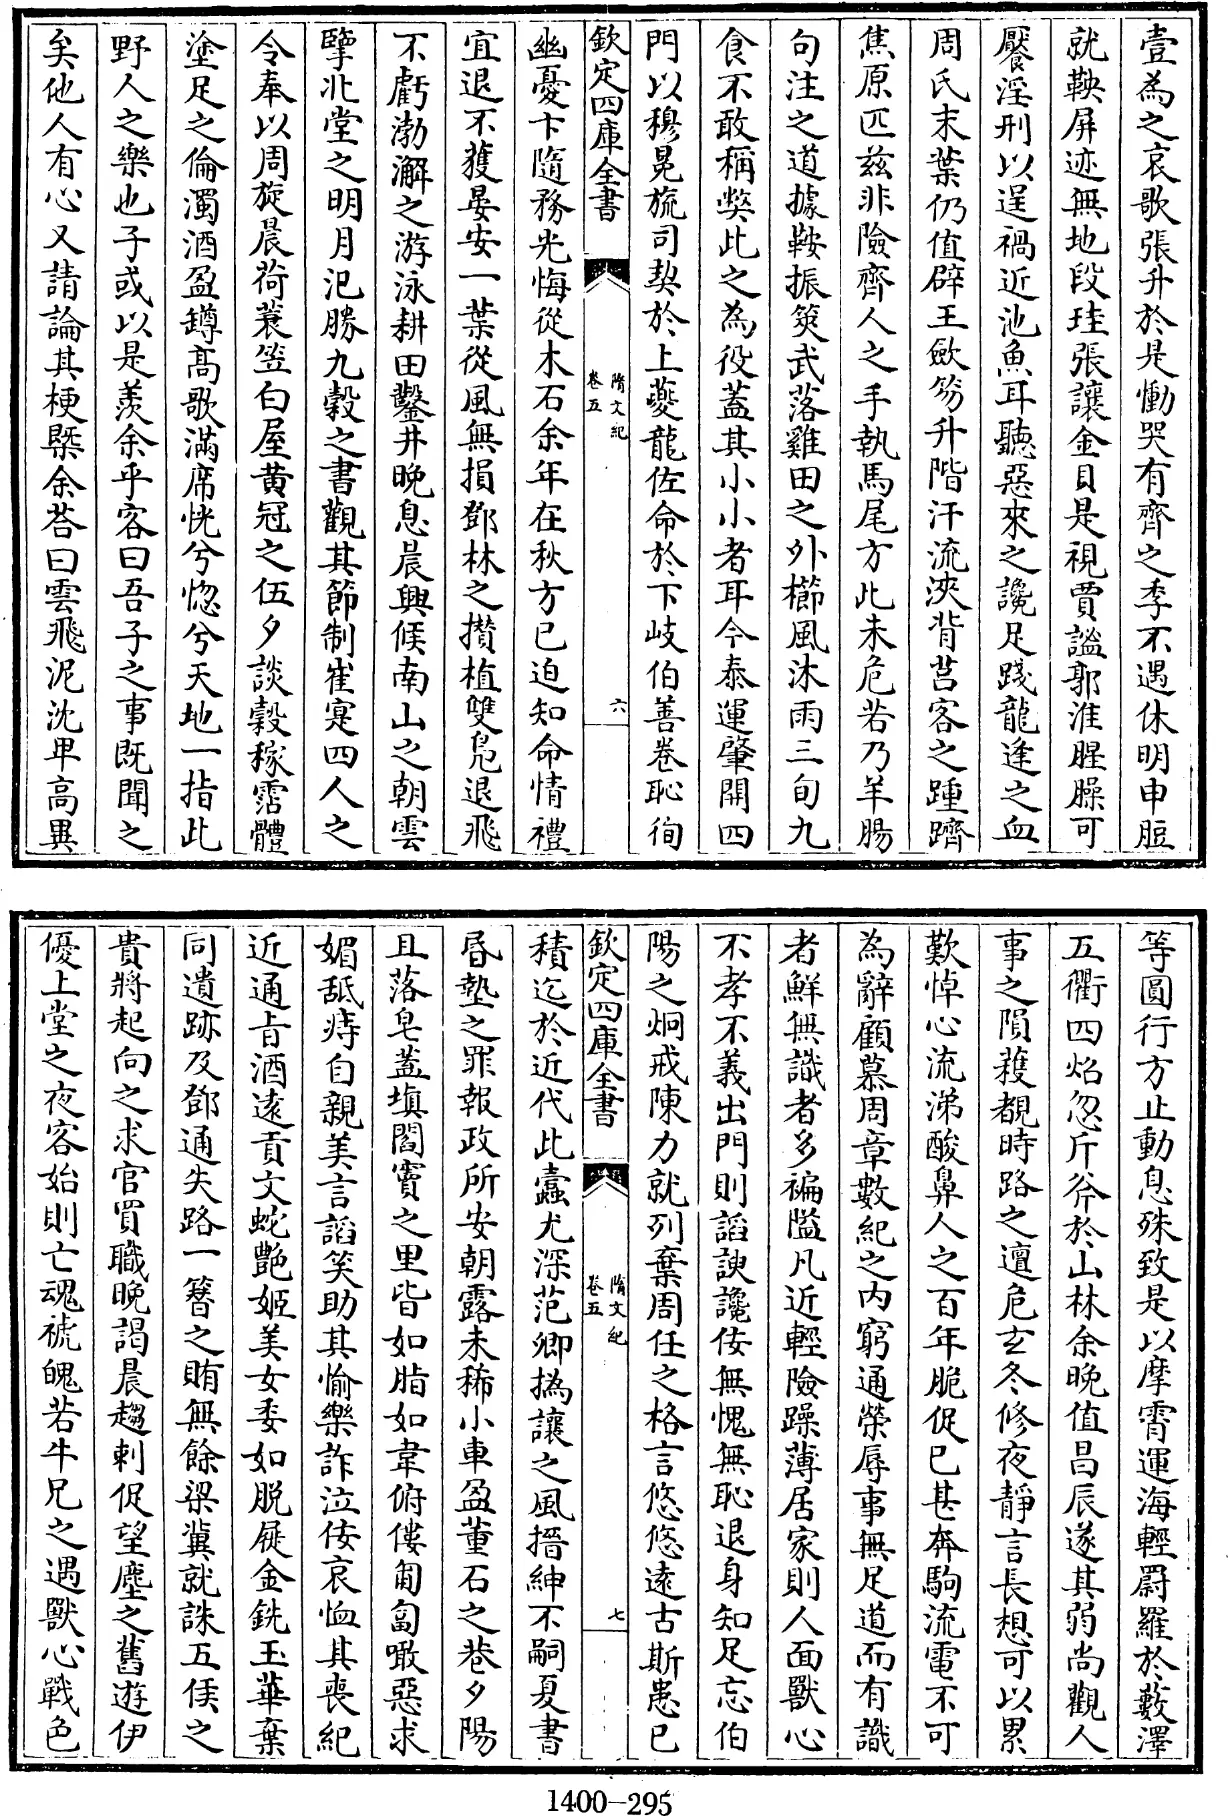 壹為之哀歌張升於是慟哭有齊之季不遇休明申脰
就鞅屏迹無地段珪張讓金貝是視賈謐郭淮腥臊可
饜淫刑以逞禍近池魚耳聽惡來之讒足踐龍逢之血
周氏末葉仍值辟王歛笏升階汗流浹背莒客之踵躋
焦原匹兹非險齊人之手執馬尾方此未危若乃羊腸
句注之道據鞍振筴武落雞田之外櫛風沐雨三旬九
食不敢稱獘此之為役蓋其小小者耳今泰運肇開四
門以穆冕旒司契於上夔龍佐命於下岐伯善卷恥徇
欽定四庫全書
隋文紀
卷五
六
幽憂卞隨務光悔從木石余年在秋方已迫知命情禮
宜退不獲晏安一葉從風無損鄧林之攢植雙鳧退飛
不虧渤澥之游泳耕田鑿井晚息晨興候南山之朝雲
擥北堂之明月氾勝九穀之書觀其節制崔寔四人之
令奉以周旋晨荷蓑笠白屋黃冠之伍夕談穀稼霑體
塗足之倫濁酒盈罇高歌滿席恍兮惚兮天地一指此
野人之樂也子或以是羨余乎客曰吾子之事既聞之
矣他人有心又請論其梗槩余荅曰雲飛泥沈卑高異
等圓行方止動息殊致是以摩霄運海輕罻羅於藪澤
五衢四焰忽斤斧於山林余晚值昌辰遂其弱尚觀人
事之隕穫覩時路之邅危玄冬修夜靜言長想可以累
歎悼心流涕酸鼻人之百年脆促已甚奔駒流電不可
為辭顧慕周章數紀之内窮通榮辱事無足道而有識
者鮮無識者多褊隘凡近輕險躁薄居家則人面獸心
不孝不義出門則諂諛讒佞無愧無恥退身知足忘伯
陽之炯戒陳力就列棄周任之格言悠悠遠古斯患已
欽定四庫全書
隋文紀
卷五
七
積迄於近代此蠹尤深范卿撝讓之風搢紳不嗣夏書
昏墊之罪報政所安朝露未稀小車盈董石之巷夕陽
且落皂蓋填閻竇之里皆如脂如韋俯僂匍匐噉惡求
媚舐痔自親美言諂笑助其愉樂詐泣佞哀恤其喪紀
近通旨酒遠貢文蛇艷姬美女委如脱屣金銑玉華棄
同遺跡及鄧通失路一簪之賄無餘梁冀就誅五侯之
貴將起向之求官買職晚謁晨趨刺促望塵之舊遊伊
優上堂之夜客始則亡魂褫魄若牛兄之遇獸心戰色
1400-295